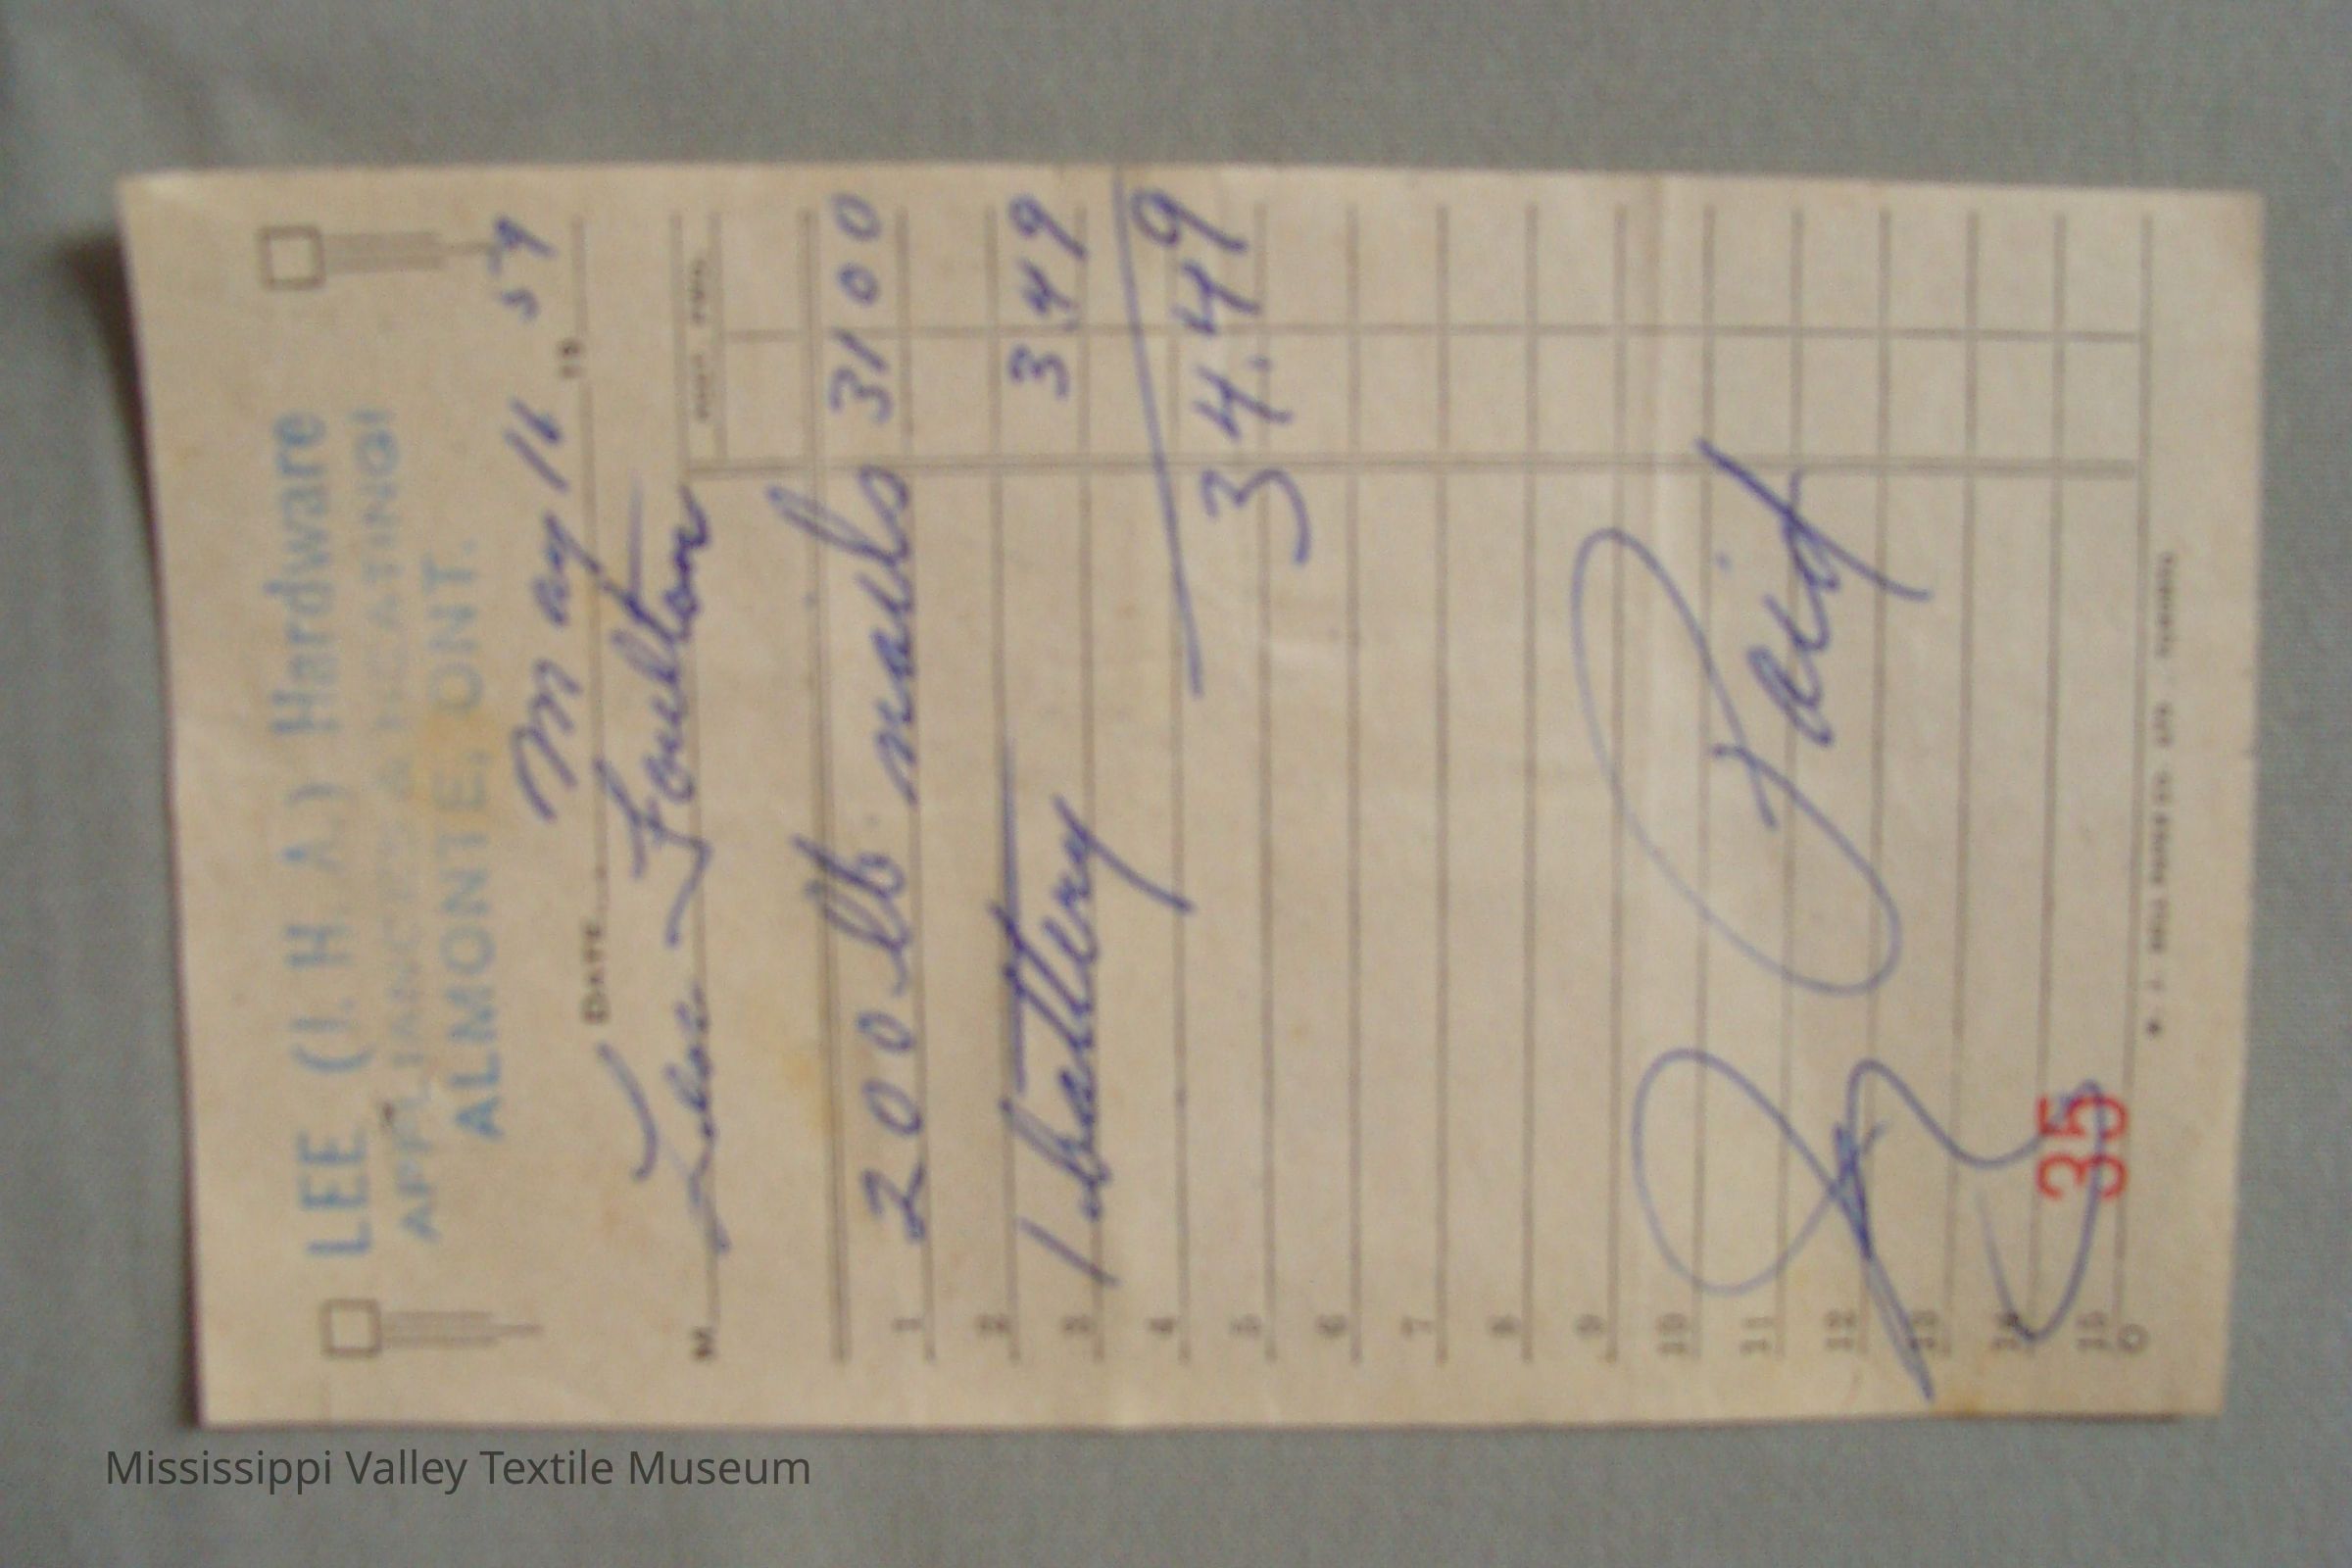 LEE (J. H. A.) Hardware
APPLIANCES & HEATING
ALMONTE, ONT.
DATE May 16 19 59
M Foulton
1 200 lb. nails 31 00
2 1 battery 3.49
3
4 34.49
5
6
7
8
9
10
11 Paid
12
13
14
15
35
Mississippi Valley Textile Museum